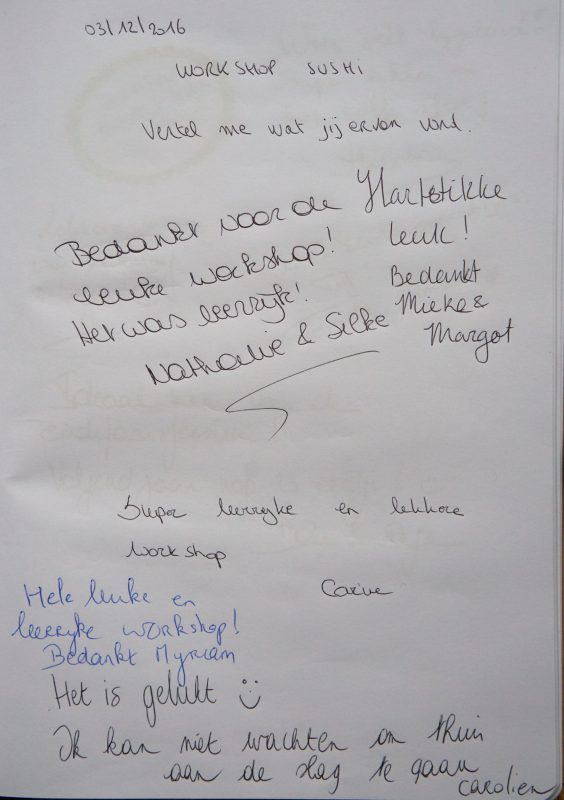 03/12/2016
WORKSHOP SUSHI
Vertel me wat jij ervan vond.
Bedankt voor de
leuke workshop!
Het was leerrijk!
Nathalie & Silke
Hartstikke
leuk!
Bedankt
Mieke &
Margot
Super leerrijke en lekkere
workshop
Carine
Hele leuke en
leerrijke workshop!
Bedankt Myriam
Het is gelukt :)
Ik kan niet wachten om thuis
aan de slag te gaan
Carolien